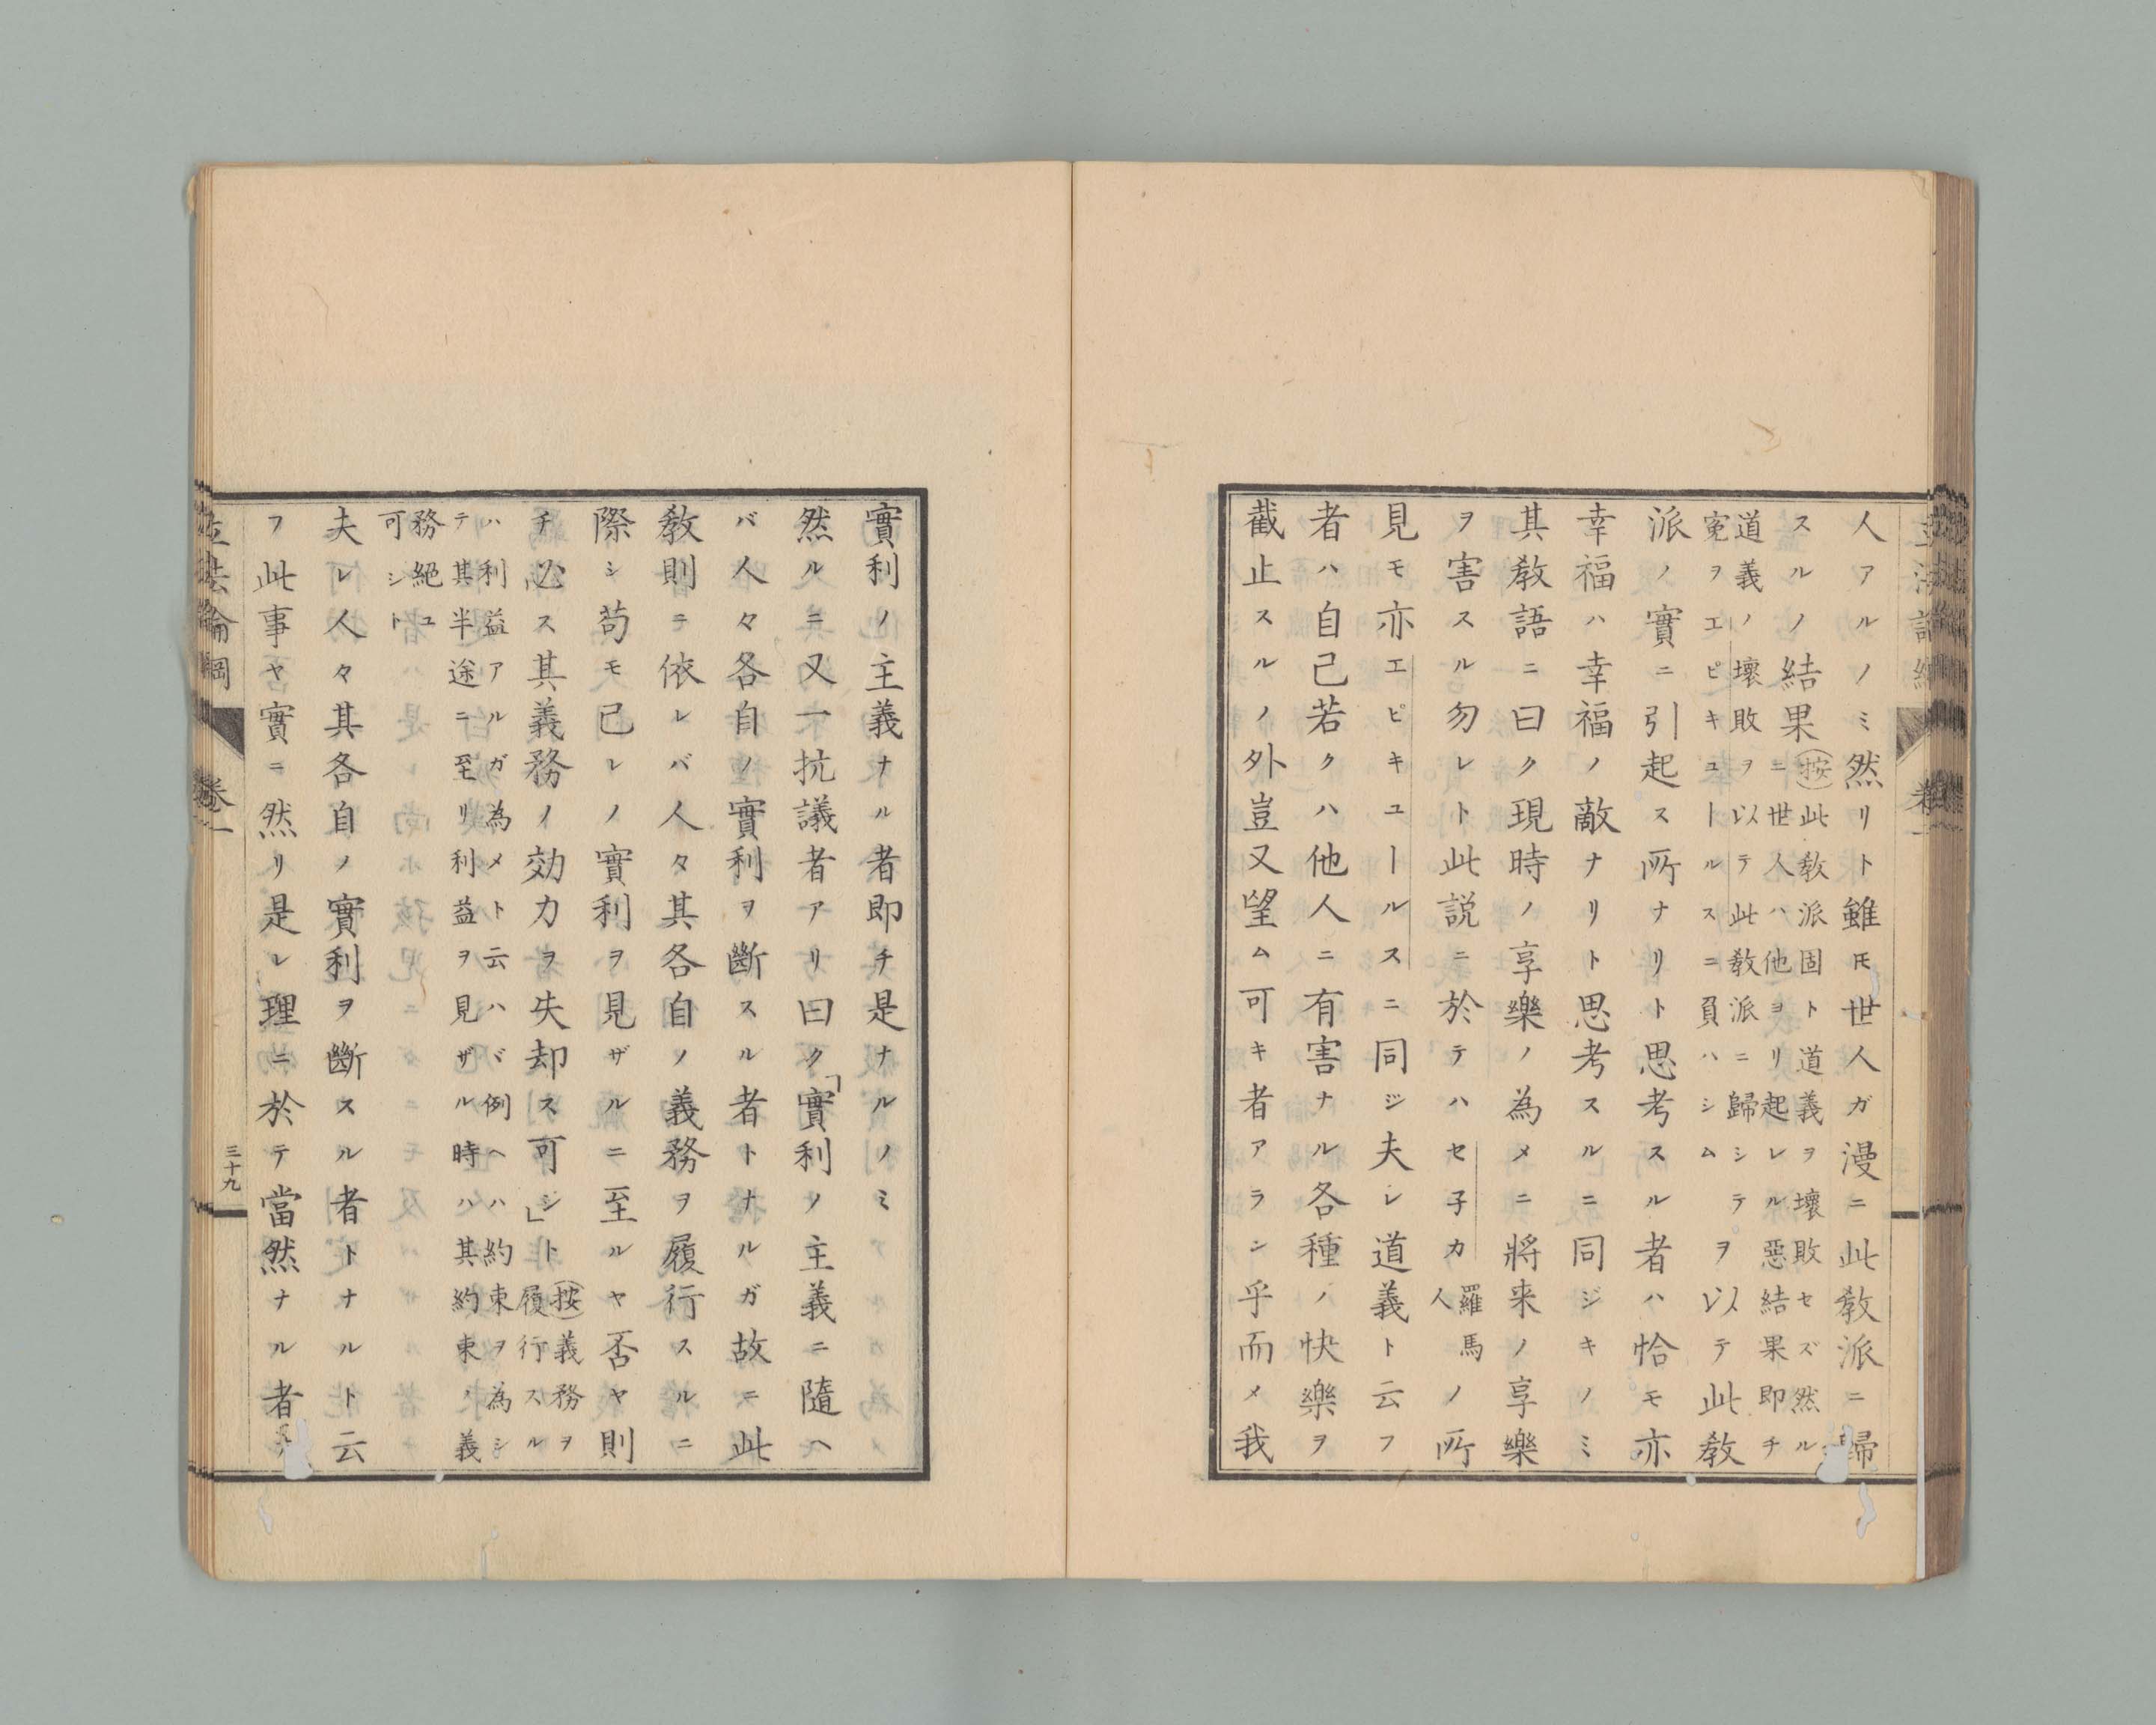 人アルノミ然リト雖𪜈世人ガ漫ニ此教派ニ歸
スルノ結果
(按)此教派固ト道義ヲ壞敗セズ然ル
ニ世人ハ他ヨリ起レル惡結果即チ
道義ノ壞敗ヲ以テ此教派ニ歸シテ
冤ヲエピキユールスニ負ハシム
ヲ以テ此教
派ノ實ニ引起ス所ナリト思考スル者ハ恰モ亦
幸福ハ幸福ノ敵ナリト思考スルニ同ジキノミ
其教語ニ曰ク現時ノ享樂ノ為メニ將来ノ享樂
ヲ害スル勿レト此説ニ於テハセ子カ
羅馬
人
ノ所
見モ亦エピキユールスニ同ジ夫レ道義ト云フ
者ハ自己若クハ他人ニ有害ナル各種ノ快樂ヲ
截止スルノ外豈又望ム可キ者アラン乎而メ我
實利ノ主義ナル者即チ是ナルノミ
然ルニ又一抗議者アリ曰ク「實利ノ主義ニ隨ヘ
バ人々各自ノ實利ヲ斷スル者トナルガ故ニ此
教則ニ依レバ人々其各自ノ義務ヲ履行スルニ
際シ苟モ己レノ實利ヲ見ザルニ至ルヤ否ヤ則
チ必ス其義務ノ効力ヲ失却ス可シ」ト
(按)義務ヲ
履行スル
ハ利益アルガ為メト云ハバ例ヘハ約束ヲ為シ
テ其半途ニ至リ利益ヲ見ザル時ハ其約束ノ義
務絕ユ
可シト
夫レ人々其各自ノ實利ヲ斷スル者トナルト云
フ此事ヤ實ニ然リ是レ理ニ於テ當然ナル者
立法論綱
卷一
三十九